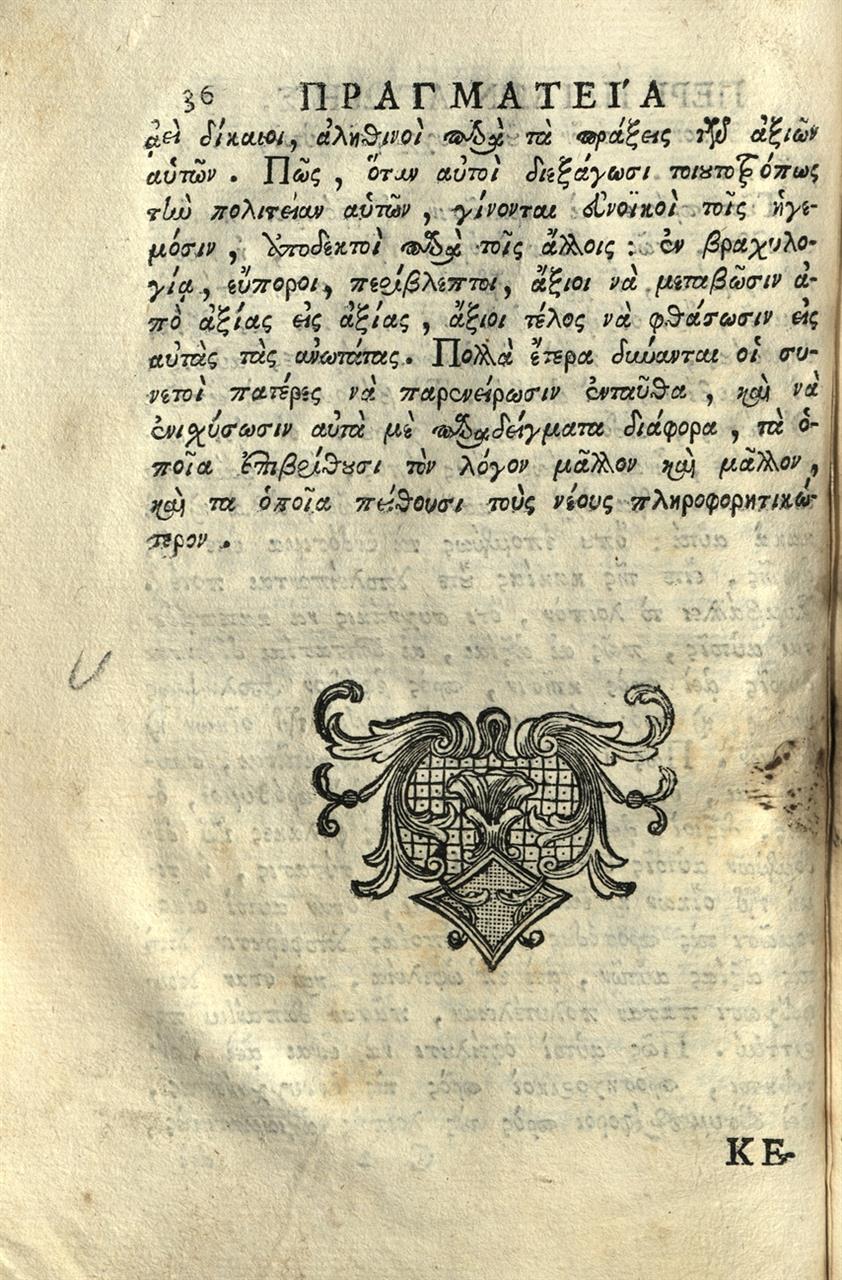 36 ΠΡΑΓΜΑΤΕΙ´Α
ἀεὶ δίκαιοι, ἀληθινοὶ παρὰ τὰ πράξεις τῶν ἀξιῶν
αὑτῶν. Πῶς, ὅταν αὐτοὶ διεξάγωσι τοιουτοτρόπως
τὴν πολιτείαν αὑτῶν, γίνονται εὐνοϊκοὶ τοῖς ἡγε-
μόσιν, ὑποδεκτοὶ παρὰ τοῖς ἄλλοις: ἐν βραχυλο-
γίᾳ, εὔποροι, περίβλεπτοι, ἄξιοι νὰ μεταβῶσιν ἀ-
πὸ ἀξίας εἰς ἀξίας, ἄξιοι τέλος νὰ φθάσωσιν εἰς
αὐτὰς τὰς ἀνωτάτας. Πολλὰ ἕτερα δύνανται οἱ συ-
νετοὶ πατέρες νὰ παρενείρωσιν ἐνταῦθα, καὶ νὰ
ἐνιχύσωσιν αὐτὰ μὲ παραδείγματα διάφορα, τὰ ὁ-
ποῖα ἐπιβρίθουσι τὸν λόγον μᾶλλον καὶ μᾶλλον,
καὶ τα ὁποῖα πείθουσι τοὺς νέους πληροφορητικώ-
τερον.
ΚΕ-